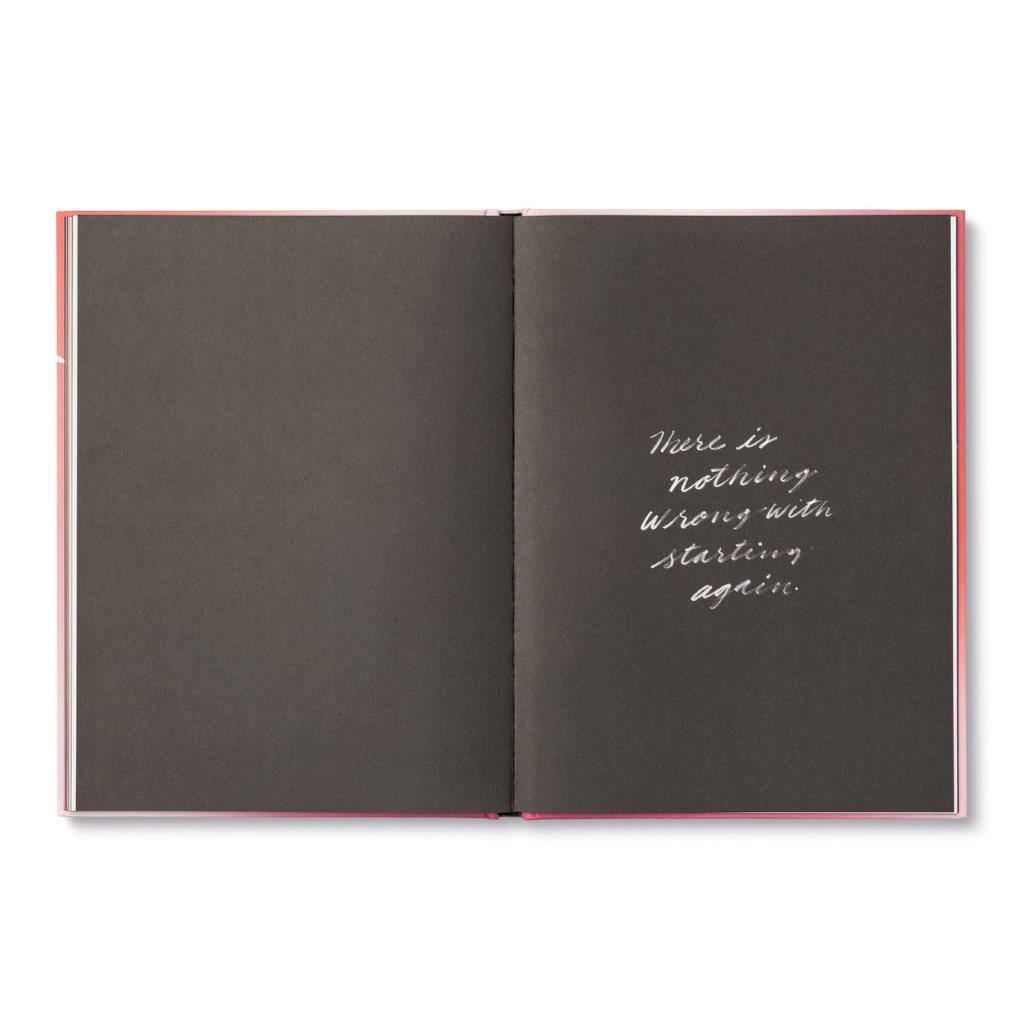 There is
nothing
wrong with
starting
again.